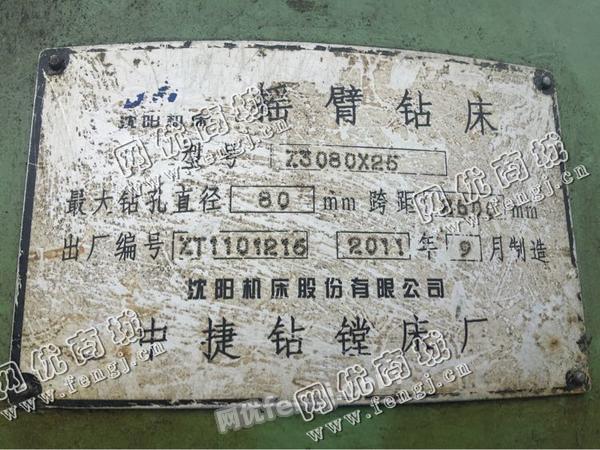 沈阳机床 摇臂钻床
型号 Z3080X25
最大钻孔直径 80 mm 跨距 2500 mm
出厂编号 ZT1101216 2011 年 9 月制造
沈阳机床股份有限公司
中捷钻镗床厂
网优商城
www.fengj.cn
网优商城
www.fengj.cn
网优商城
www.fengj.cn
网优商城
www.fengj.cn